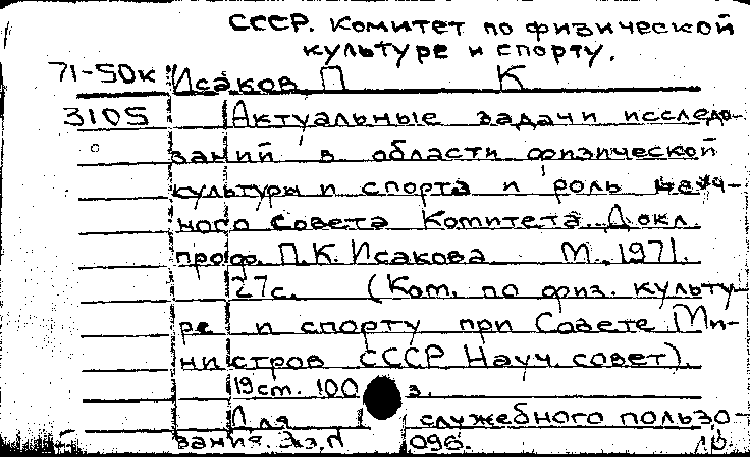 СССР. Комитет по физической
культуре и спорту.
71-50к Исаков П К
3105 Актуальные задачи исследо-
ваний в области физической
культуры и спорта и роль науч-
ного Совета Комитета. Докл.
проф. П.К. Исакова. М., 1971.
27с. (Ком. по физ. культу-
ре и спорту при Совете Ми-
нистров СССР Науч. совет).
19см. 100 з.
Для служебного пользо-
вания. Экз. N 096.